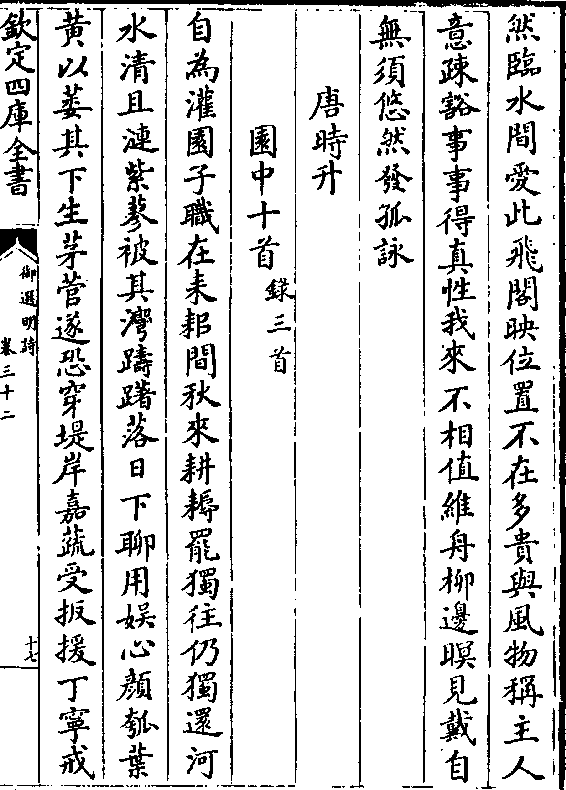 然臨水間愛此飛閣映位置不在多貴與風物稱主人
意疎豁事事得真性我來不相值維舟柳邊暝見戴自
無須悠然發孤詠
唐時升
園中十首錄三首
自為灌園子職在耒耜間秋來耕耨罷獨往仍獨還河
水清且漣紫蓼被其灣躊躇落日下聊用娛心顔瓠葉
黄以萎其下生茅菅遂恐穿堤岸嘉蔬受扳援丁寧戒
欽定四庫全書
御選明詩
卷三十二
十七